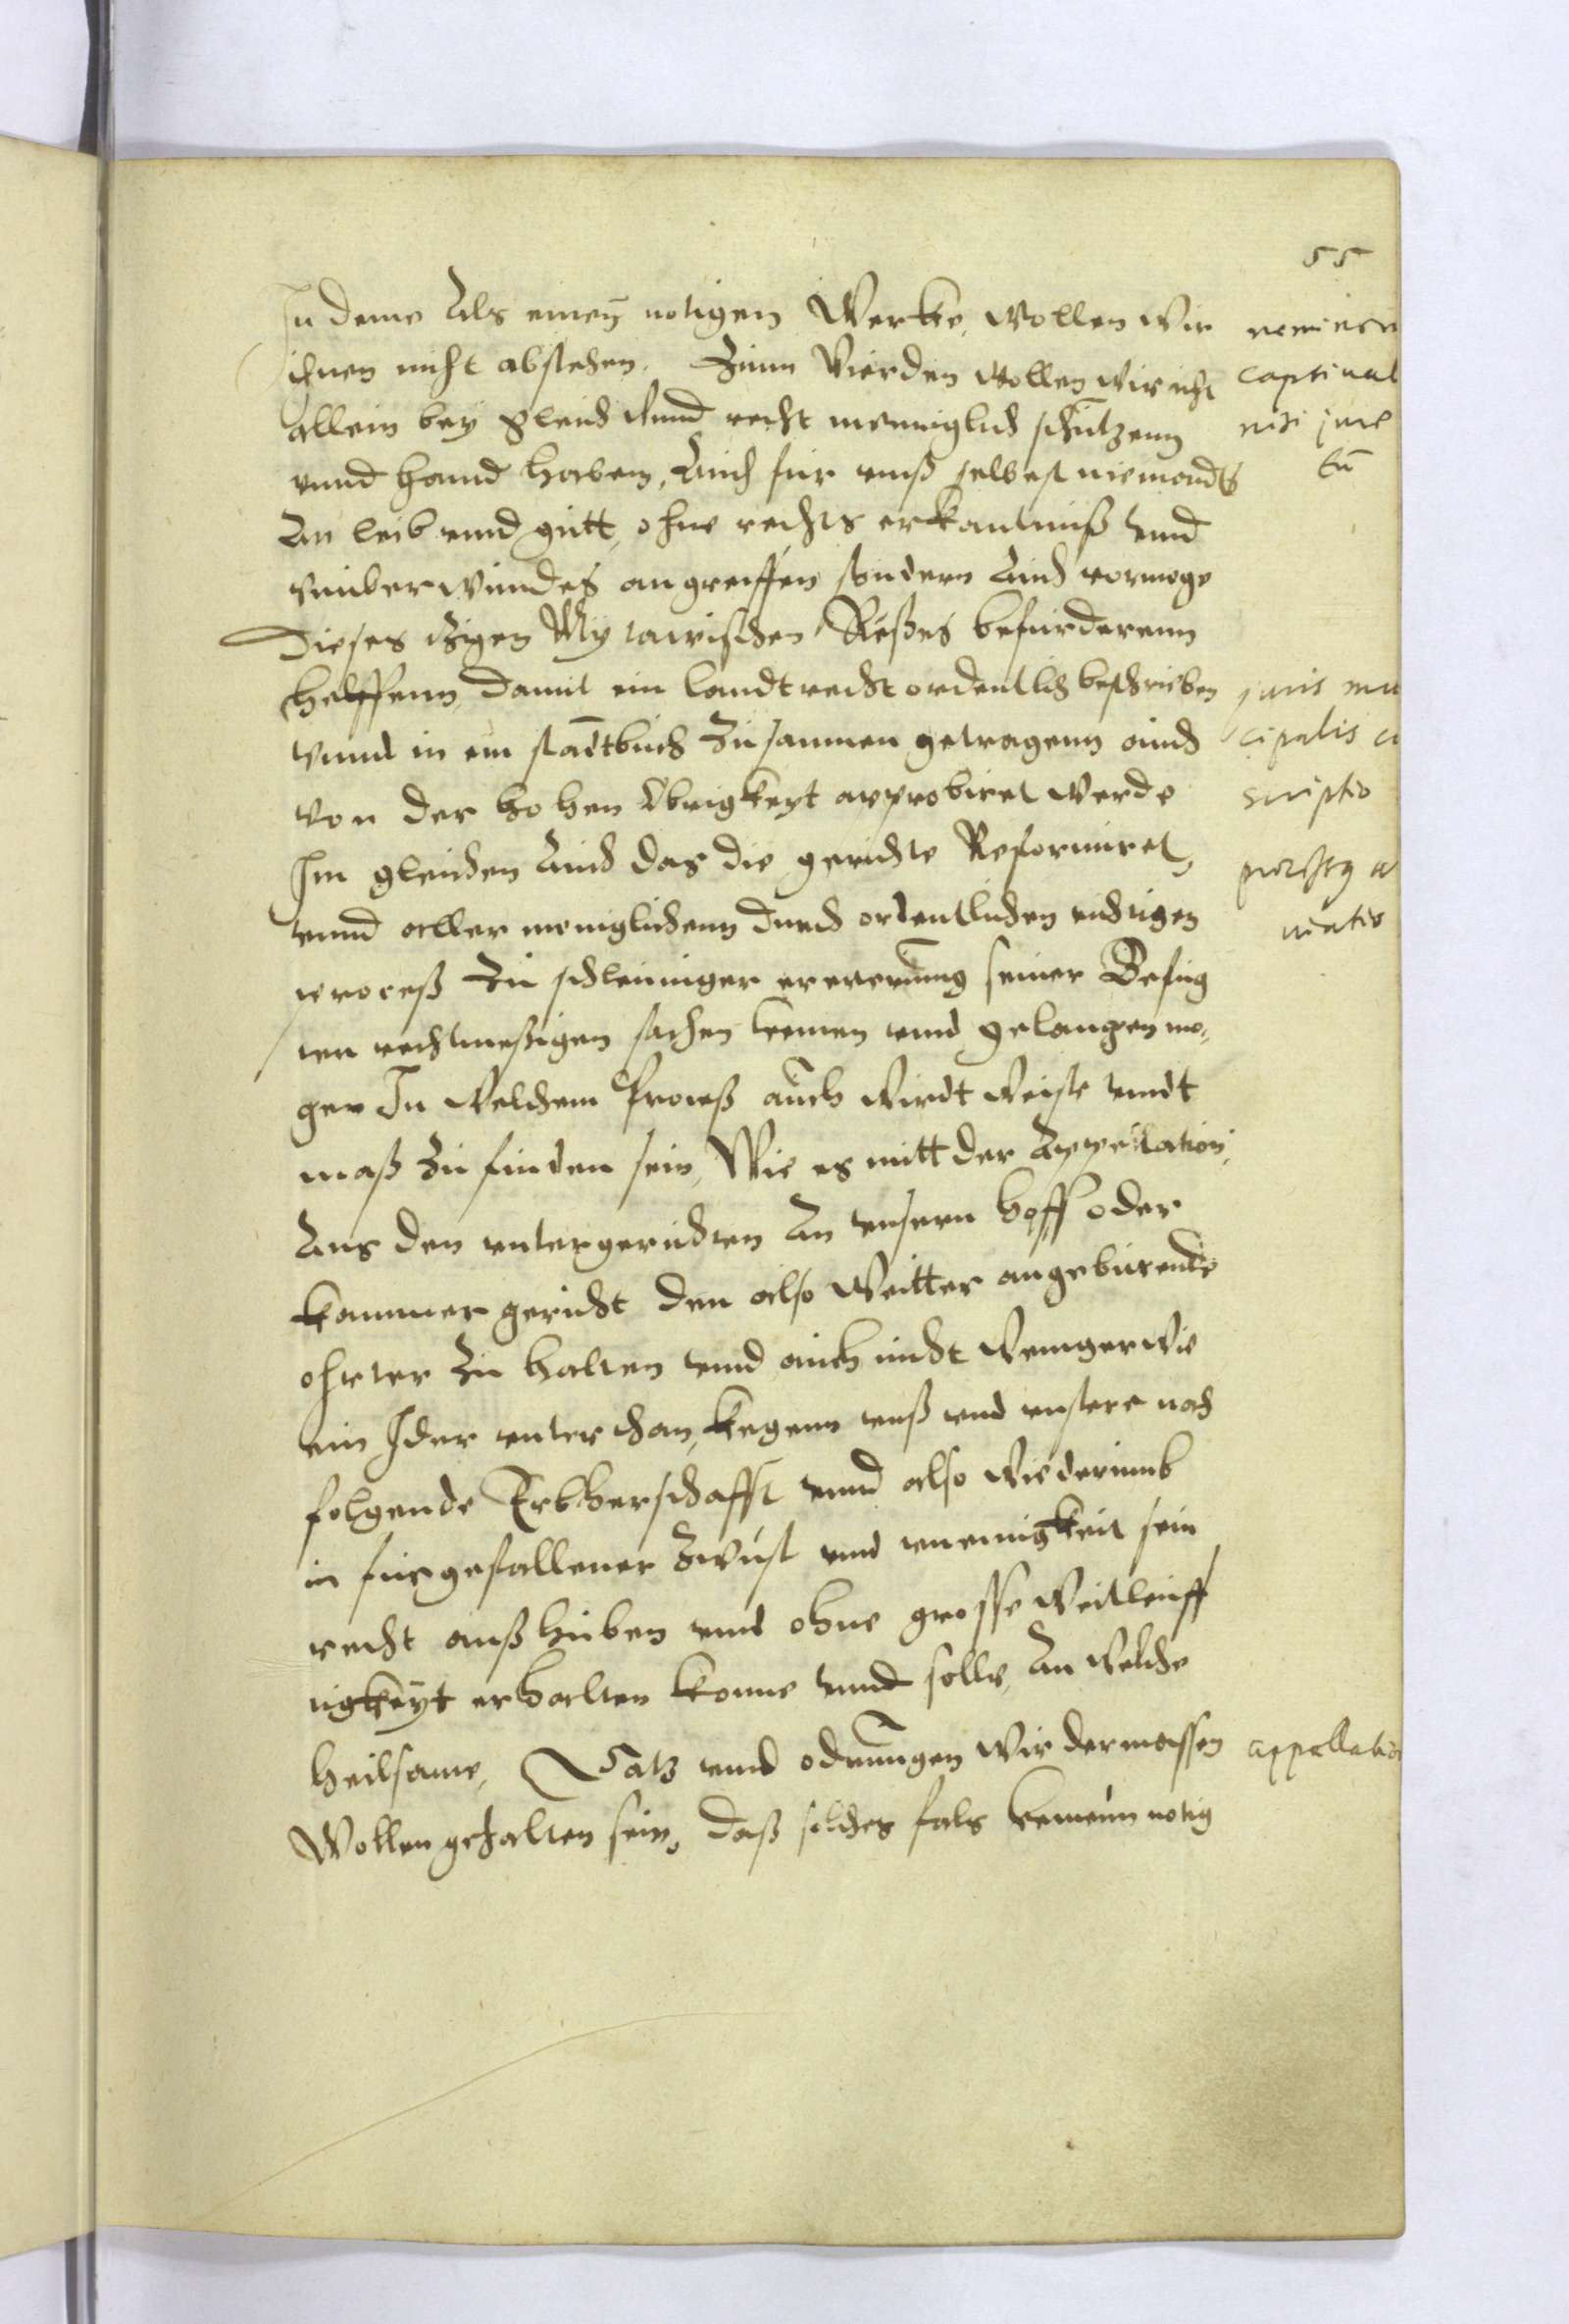 55
In deme Als einem notigen Wercke, Wollen Wir
ihnen nicht abstehen. Zum Vierden wollen wir nicht
allein bey gleich vnnd recht menniglich schutzenn
vnnd handhaben, Auch fur vnß selbest niemandts
An leib vnnd gutt, ohne rechts erkantniß vnnd
vnuberwundes angreiffen sondern Auch vormoge
Dieses itzigen Mytawischen Reßes befurderenn
helffenn, damit ein landtrecht ordentlich beschrieben
vnnd in ein stadtbuch Zusammen getragenn auch
von der hohen Obrigkeyt approbiret werde
Im gleichen Auch das die gerichte Reformiret,
vnnd aller menniglichenn durch ordentlichen richtigen
proceß Zu schleuniger erorterung seiner Befug
ten rechtmeßigen sachen komen vnnd gelangen mo-
ge. In welchem Proceß auch wirdt Weise vnndt
maß Zu finden sein, Wie es mitt der Appellation,
Aus den vntergerichten An vnsern hoff oder
kammergericht den also Weitter an geburende
ohrter Zu halten vnnd auch nicht Weniger Wie
ein Jder vnterthan, kegenn vnß vnd vnsere nach
folgende Erbherschafft vnnd also wiederumb
in furgefallener Zwust vnd vneinigkeit sein
recht auß huben vnnd ohne grosse Weitleuff
tigkeyt erhalten konne vnnd solle, An Welche
heilsame, Satz vnnd odnungen wir dermassen
Wollen gehalten sein, daß solches fals keinenn notig
neminem
captiuat
nisi jure
juris mu
cipalis
scriptio
appellatio